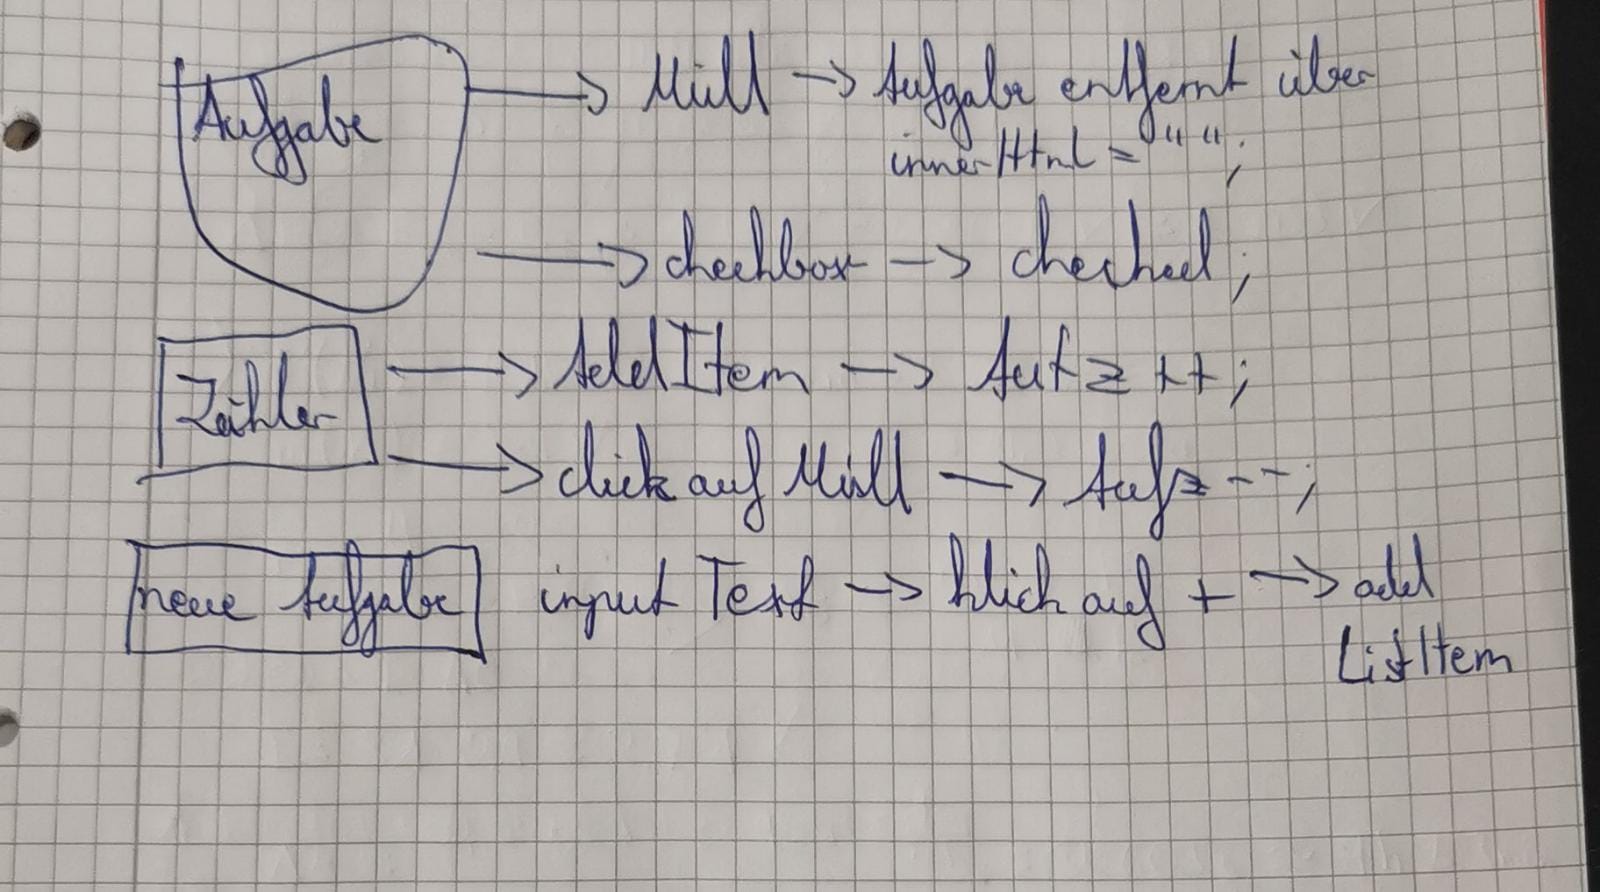 Aufgabe → Müll → Aufgabe entfernt über
innerHtml = "";
→ checkbox → checked;
Zähler → AddItem → Aufz++;
→ click auf Müll → Aufz--;
neue Aufgabe input Text → klick auf + → add
ListItem